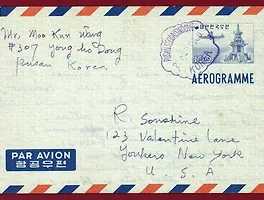 Mr. Moo Kun Wang
#307 Yong Ho Dong
Pusan Korea
AÉROGRAMME
R. Sonshine
123 Valentine Lane
Yonkers New York
U. S. A
PAR AVION
항공우편